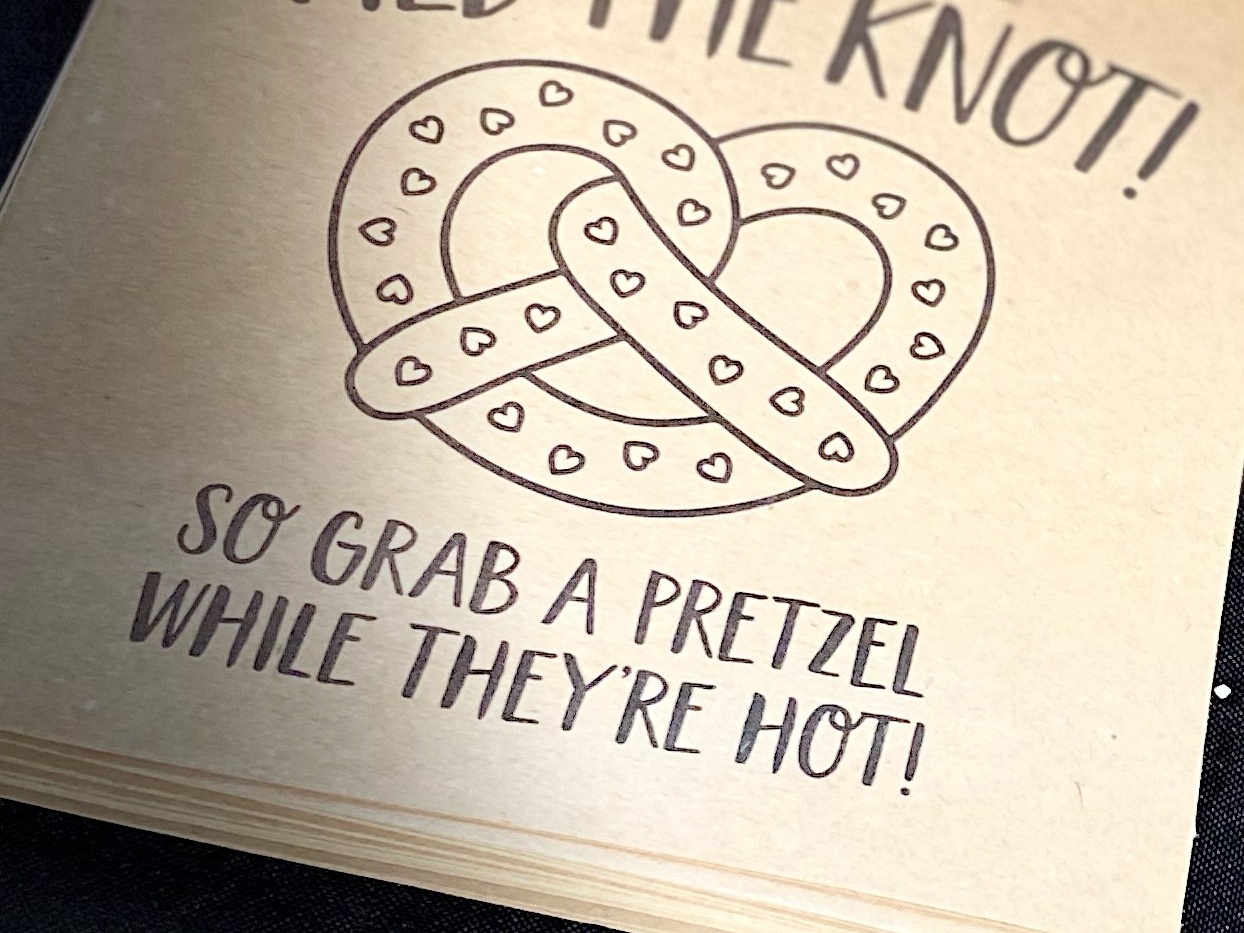 THE KNOT!
SO GRAB A PRETZEL
WHILE THEY'RE HOT!